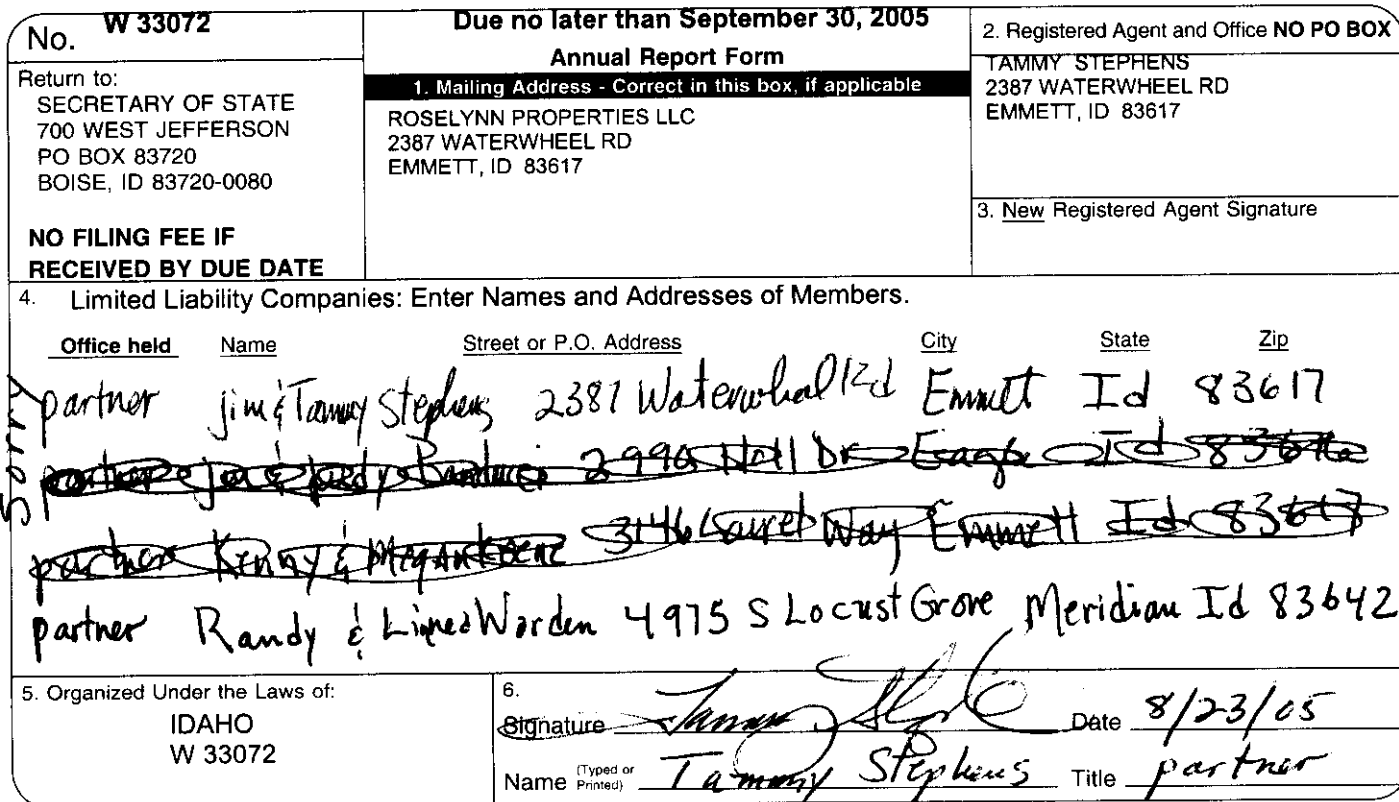 No. W 33072
Return to:
SECRETARY OF STATE
700 WEST JEFFERSON
PO BOX 83720
BOISE, ID 83720-0080
NO FILING FEE IF
RECEIVED BY DUE DATE
Due no later than September 30, 2005
Annual Report Form
1. Mailing Address - Correct in this box, if applicable
ROSELYNN PROPERTIES LLC
2387 WATERWHEEL RD
EMMETT, ID 83617
2. Registered Agent and Office NO PO BOX
TAMMY STEPHENS
2387 WATERWHEEL RD
EMMETT, ID 83617
3. New Registered Agent Signature
4. Limited Liability Companies: Enter Names and Addresses of Members.
Office held Name Street or P.O. Address City State Zip
Sorry
partner Jim & Tammy Stephens 2387 Id 83617
partner & Judy Dr Id
partner Kenny & Megan 3146 Laurel Way Emmett Id 83617
partner Randy & Worden 4975 S Locust Grove Meridian Id 83642
5. Organized Under the Laws of:
IDAHO
W 33072
6.
Signature Tammy Date 8/23/05
Name (Typed or Printed) Tammy Stephens Title partner